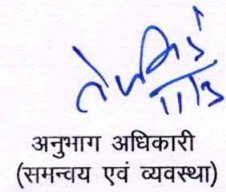 11/3
अनुभाग अधिकारी
(समन्वय एवं व्यवस्था)